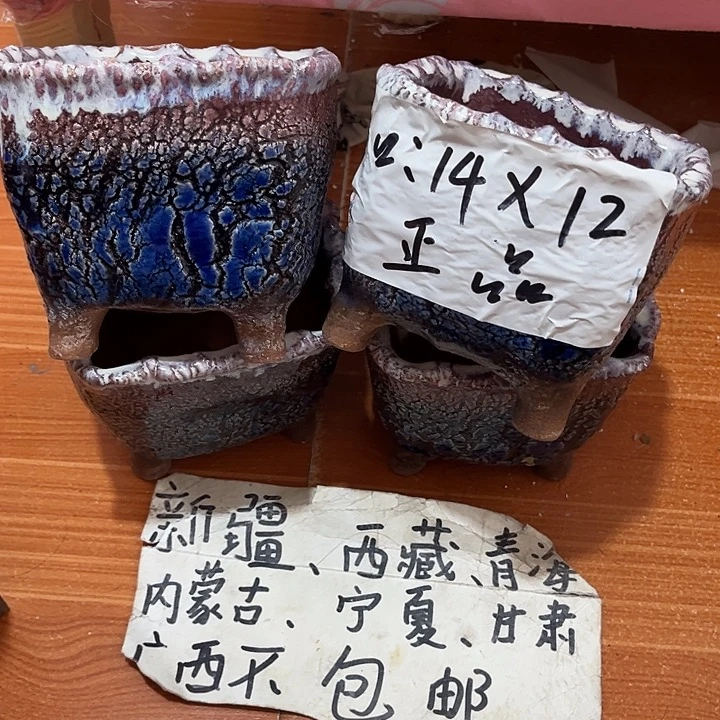 口:14×12
正品
新疆、西藏、青海
内蒙古、宁夏、甘肃
广西不包邮